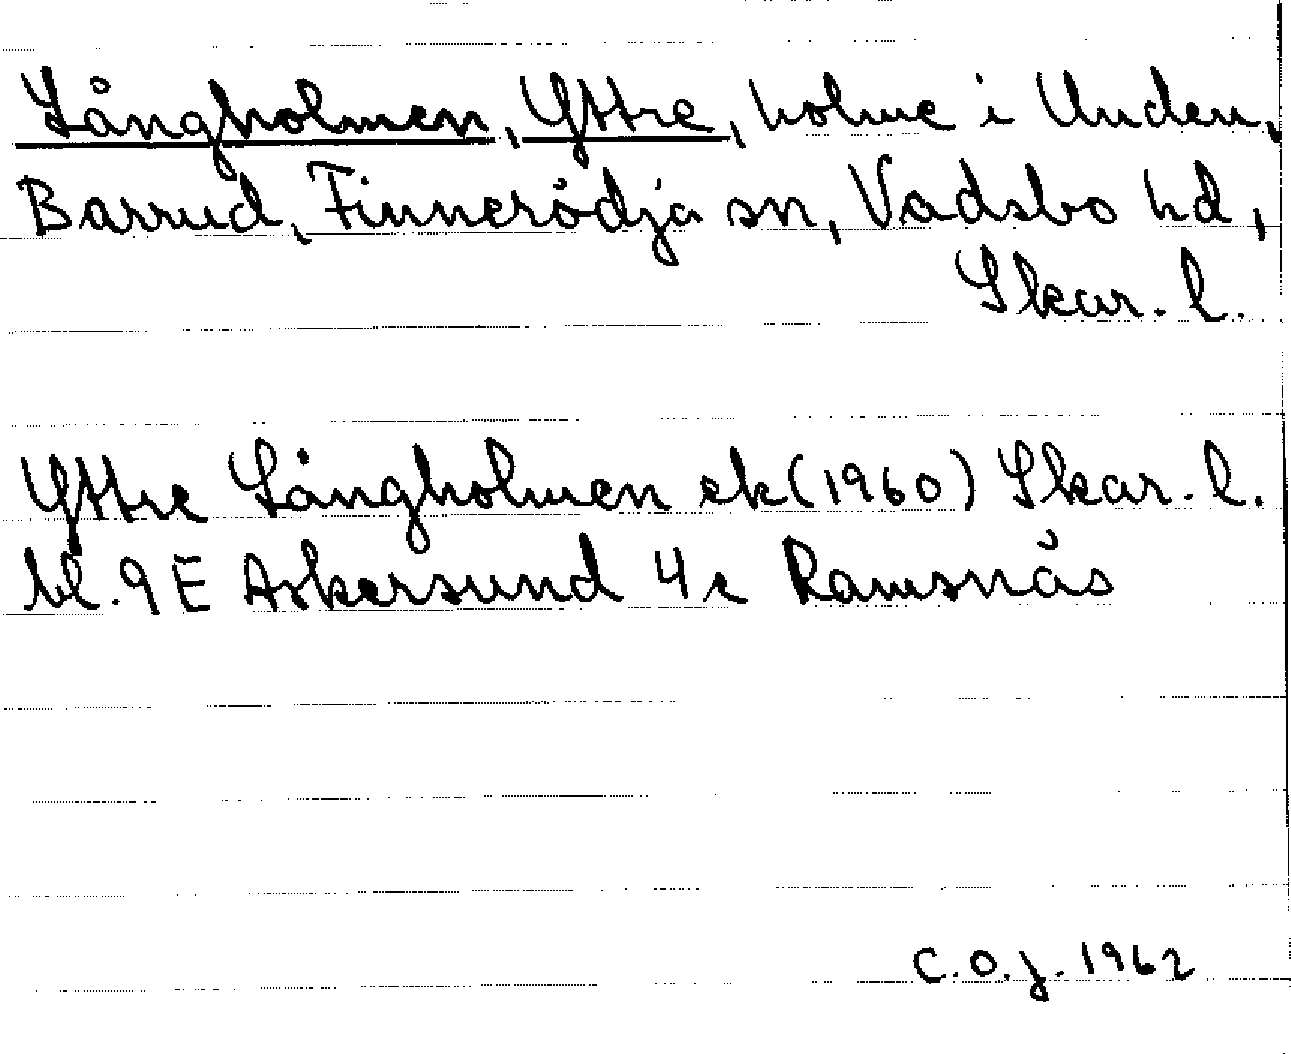 Långholmen, Yttre, holme i Unden,
Barrud, Finnerödja sn, Vadsbo hd,
Skar. l.
Yttre Långholmen ek (1960) Skar. l.
bl. 9E Askersund 4c Ramsnäs
C.O.J. 1962